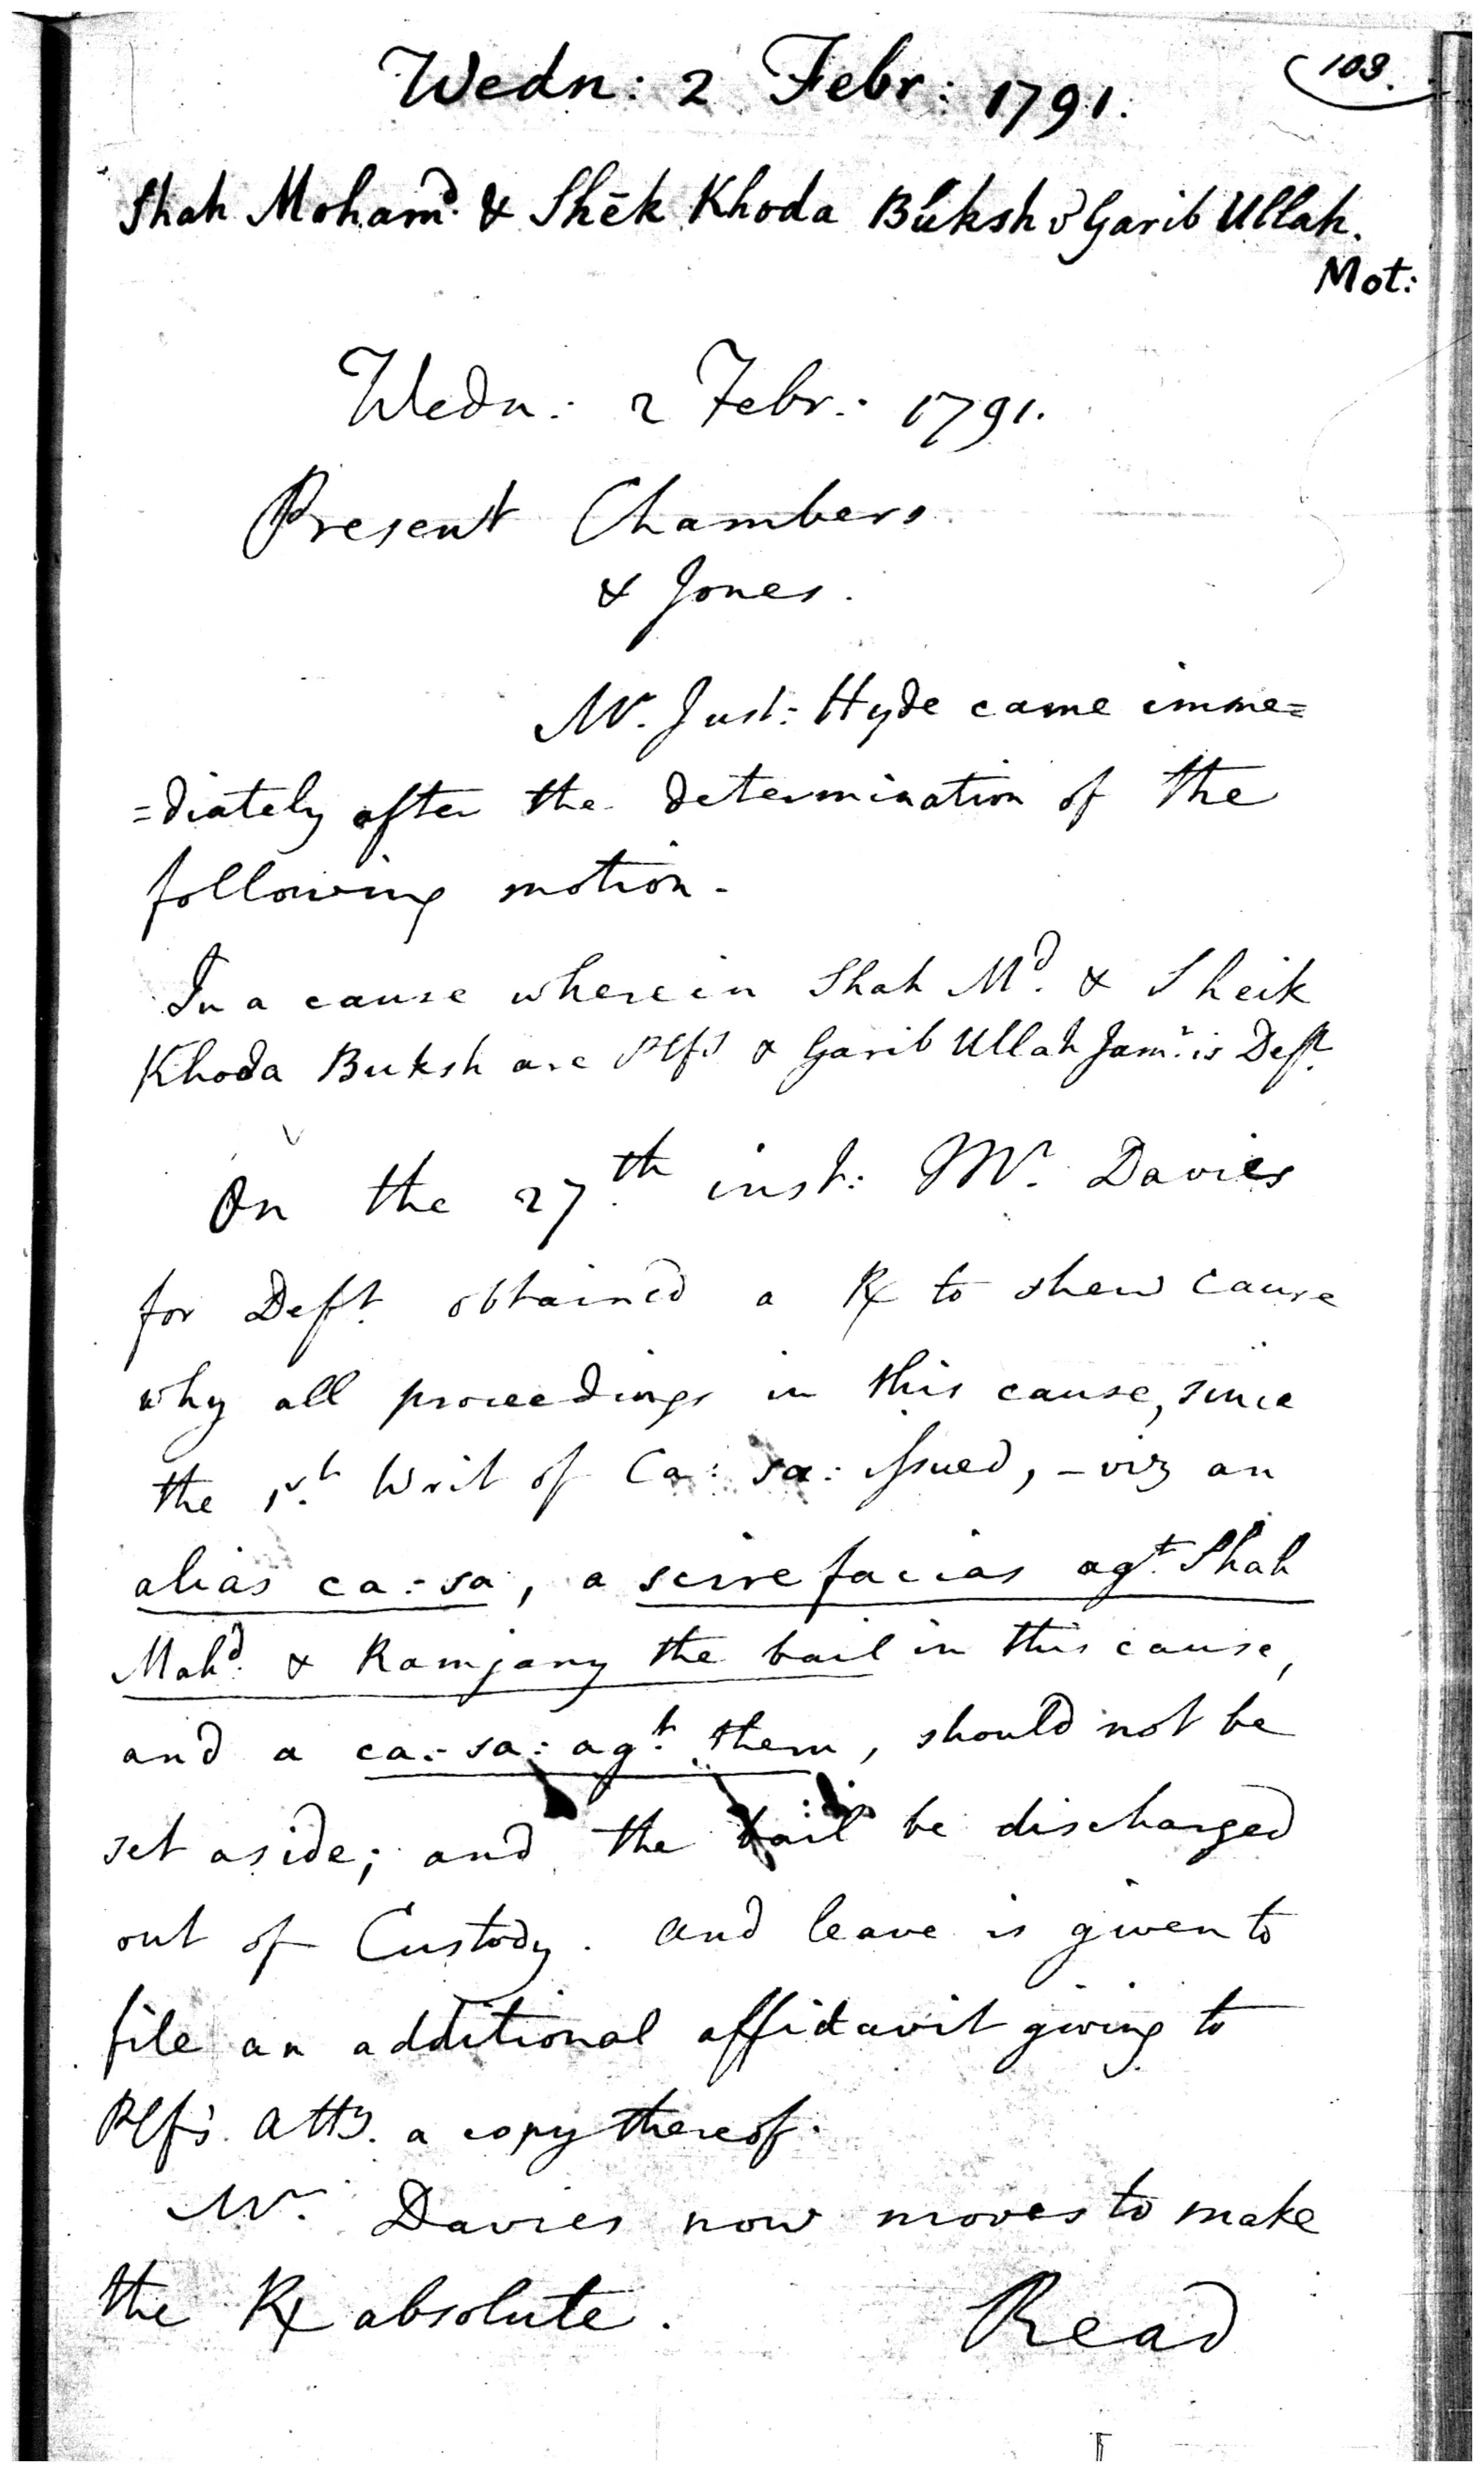 103.
Wedn: 2 Febr: 1791.
Shah Moham^d. & Shēk Khoda Buksh v Garib Ullah.
Mot:
Wedn: 2 Febr: 1791.
Present Chambers
& Jones.
M^r. Just: Hyde came imme=
=diately after the determination of the
following motion.
In a cause wherein Shah M^d. & Sheik
Khoda Buksh are Plfs & Garib Ullah Jam^r. is Def^t.
On the 27^th. inst: M^r. Davies
for Def^t. obtained a R to shew cause
why all proceedings in this cause, since
the 1^st. Writ of Ca: sa: issued, – viz an
alias ca: sa:, a scire facias ag^t. Shah
Moh^d. & Ramjany the bail in this cause,
and a ca: sa: ag^t. them, should not be
set aside; and the bail be discharged
out of Custody. And leave is given to
file an additional affidavit giving to
Plfs. Att^y. a copy thereof.
M^r. Davies now moves to make
the R absolute.
Read